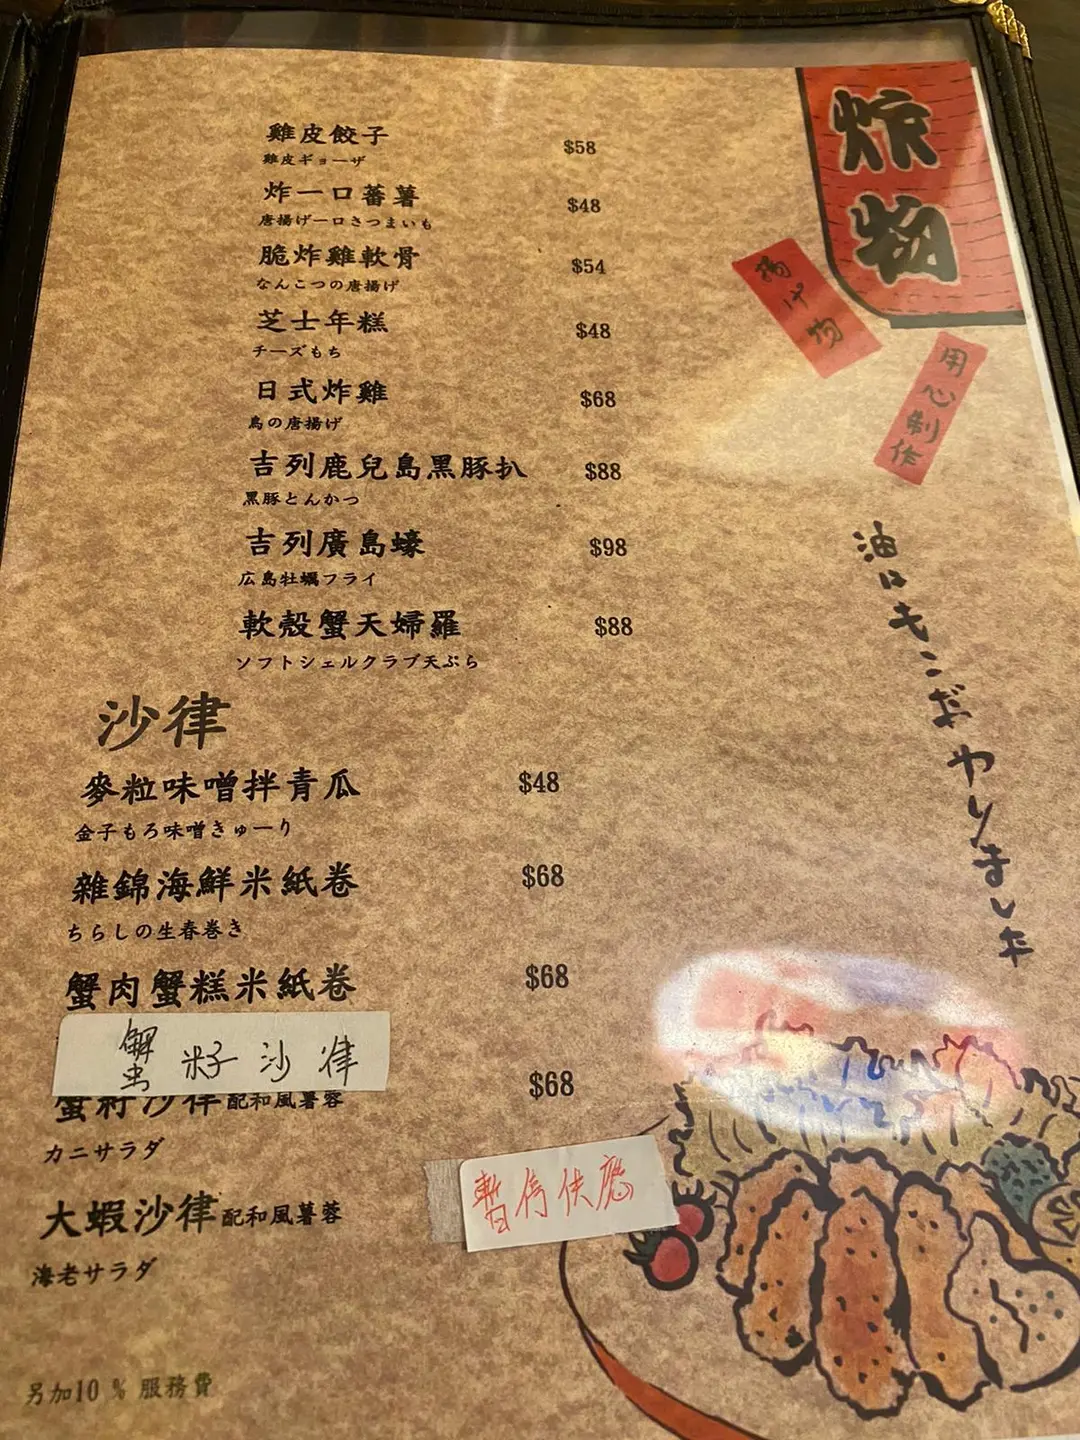 炸物
揚げ物
用心制作
油はキンだやりました
雞皮餃子 $58
雞皮ギョーザ
炸一口蕃薯 $48
唐揚げ一口さつまいも
脆炸雞軟骨 $54
なんこつの唐揚げ
芝士年糕 $48
チーズもち
日式炸雞 $68
鳥の唐揚げ
吉列鹿兒島黑豚扒 $88
黒豚とんかつ
吉列廣島蠔 $98
広島牡蠣フライ
軟殼蟹天婦羅 $88
ソフトシェルクラブ天ぷら
沙律
麥粒味噌拌青瓜 $48
金子もろ味噌きゅーり
雜錦海鮮米紙卷 $68
ちらしの生春巻き
蟹肉蟹糕米紙卷 $68
蟹籽沙律
蟹籽沙律配和風薯蓉 $68
カニサラダ
大蝦沙律配和風薯蓉 暫停供應
海老サラダ
另加10 % 服務費